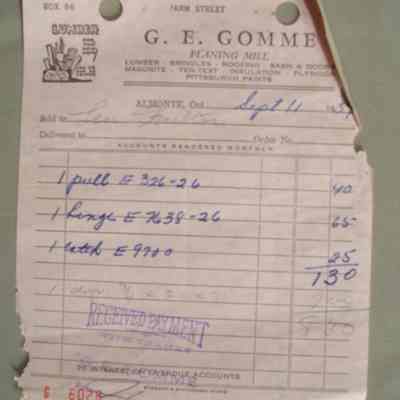 BOX 96 FARM STREET
LUMBER
G. E. GOMME
PLANING MILL
LUMBER SHINGLES ROOFING SASH & DOORS
MASONITE - TEN-TEST INSULATION PLYWOOD
PITTSBURGH PAINTS
ALMONTE, Ont. Sept 11 195
Sold to
Delivered to Order No.
ACCOUNTS RENDERED MONTHLY
1 pull E 326-26 40
1 hinge E 7638-26 65
1 catch E 9700 25
130
1
RECEIVED PAYMENT
INTEREST ON OVERDUE ACCOUNTS
6 6028